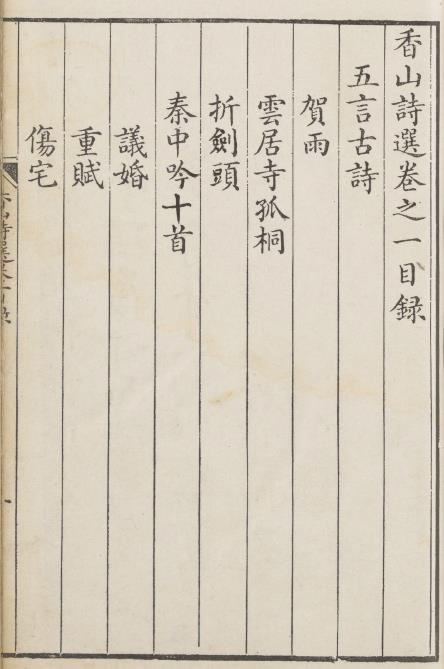 香山詩選卷之一目録
五言古詩
賀雨
雲居寺孤桐
折劍頭
秦中吟十首
議婚
重賦
傷宅